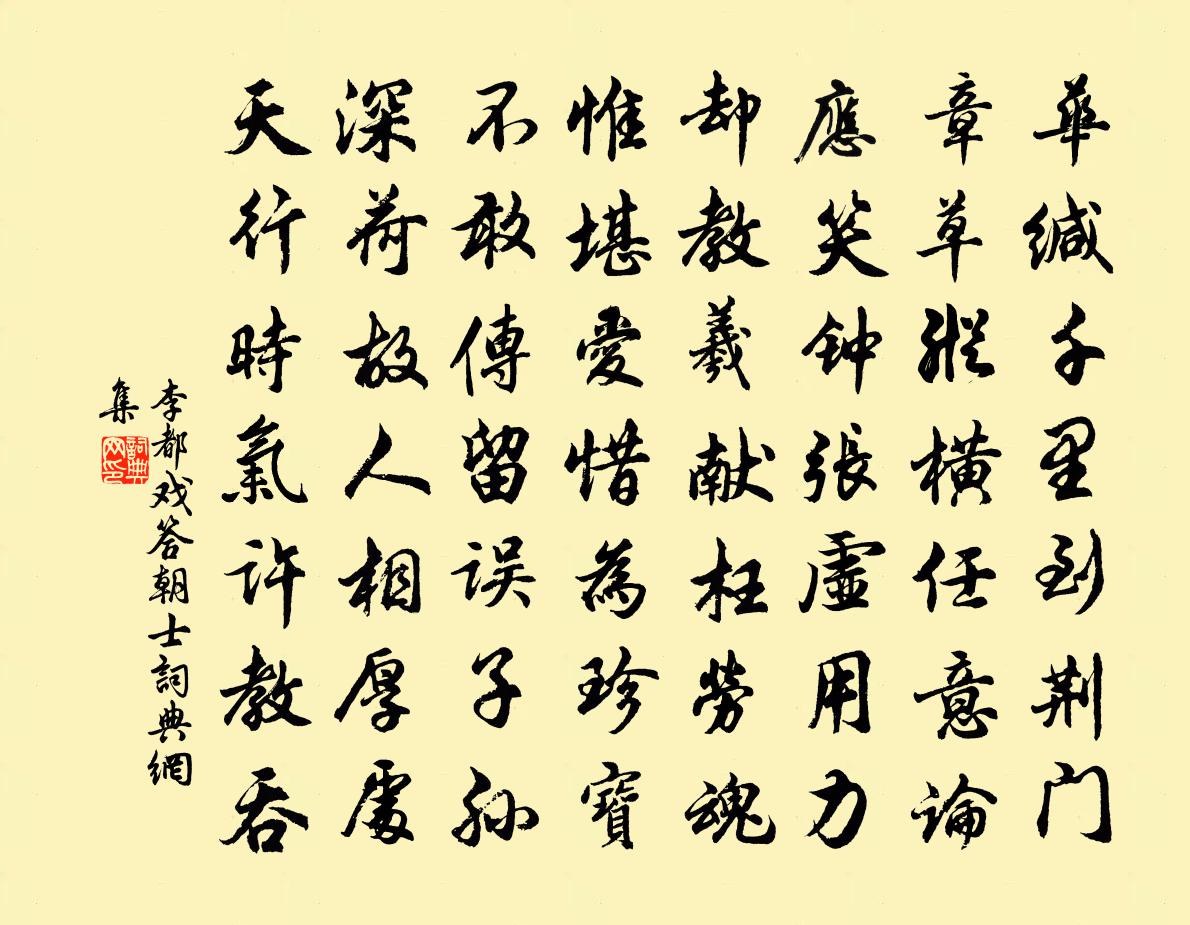 華缄千里到荆门
章草縱橫任意論
應笑钟張虛用力
却教羲献枉勞魂
惟堪愛惜為珍寶
不敢傳留误子孙
深荷故人相厚處
天行時氣许教吞
李都戏答朝士詞典網
集
詞典網印